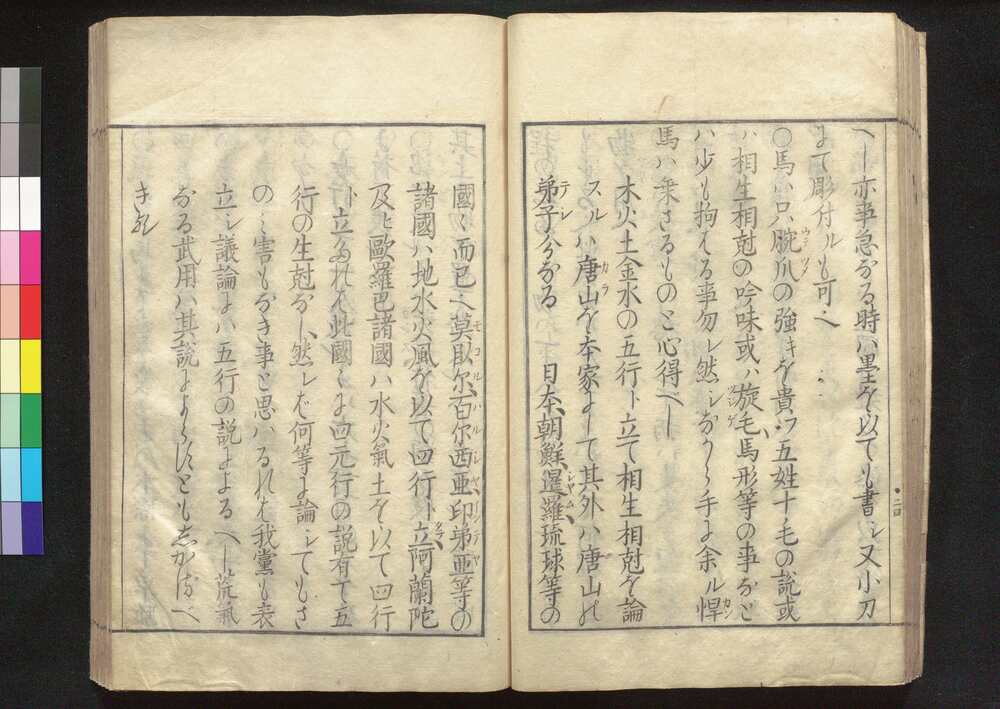 へし亦事急なる時ハ墨を以ても書シ又小刀
にて彫付ルも可へ
○馬ハ只腕爪の強キを貴フ五姓十毛の説或
ハ相生相尅の吟味或ハ旋毛馬形等の事など
ハ少も拘はる事勿レ然シながら手に余ル悍
馬ハ乗さるものと心得べし
木火土金水の五行ト立て相生相尅を論
スルハ唐山を本家にして其外ハ唐山の
弟子分なる日本、朝鮮、暹羅、琉球等の
國々而已へ莫臥尔、百尓西亜、印弟亜等の
諸國ハ地水火風を以て四行ト立、阿蘭陀
及ヒ歐羅巴諸國ハ水火氣土を以て四行
ト立るなれば此國々に四元行の説有て五
行の生尅なし、然レば何等に論シてもさ
のミ害もなき事と思ハるれは我黨も表
立シ議論にハ五行の説による へし荒氣
なる武用ハ其説によらずともしかるべ
き歟
二四